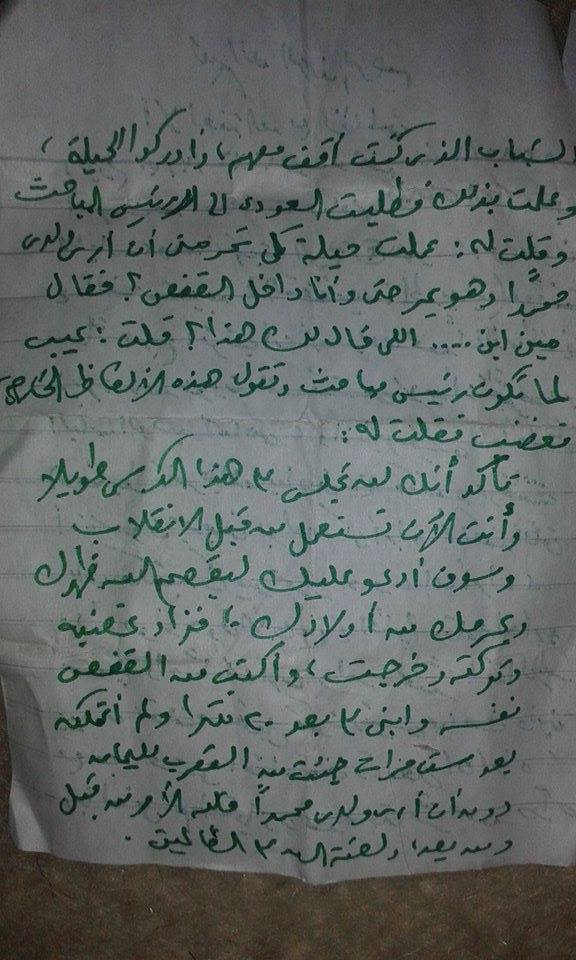 الشباب الذى كنت أقف معهم، وأدركوا الحيلة،
وعلمت بذلك فطلبت الصعود إلى رئيس المباحث
وقلت له: عملت حيلة لكى تحرمنى أن أرى ولدى
محمدًا وهو يمر حتى وأنا داخل القفص؟ فقال
مين ابن .... اللى قال لك هذا؟ قلت: عيب
لما تكون رئيس مباحث وتقول هذه الألفاظ الخارجة
فغضب فقلت له:
تأكد أنك لن تجلس على هذا الكرسى طويلا
وأنت الآن تستعمل من قبل الانقلاب
وسوف أدعو عليك ليقصم الله ظهرك
ويحرمك من أولادك، فزاد غضبه
وتركته وخرجت، وأكتب من القفص
نفسه وابنى على بعد ٢٠ مترا ولم أتمكن
بعد ست مرات جئت من العقرب لليمان
دون أن أرى ولدى محمداً فلله الأمر من قبل
ومن بعد، ولعنة الله على الظالمين.